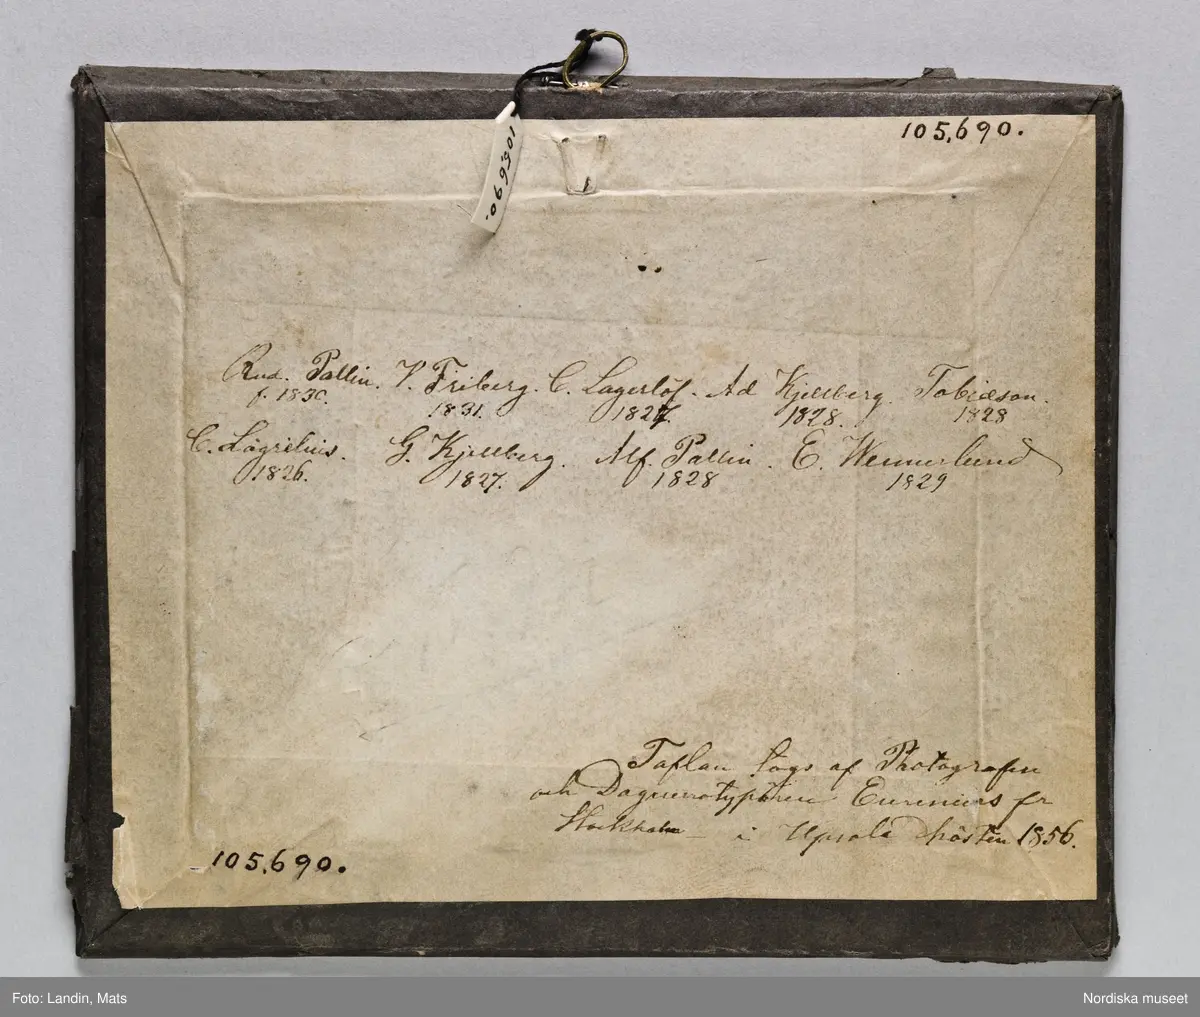 105,690.
105,690.
Rud. Pallin. V. Friberg. C. Lagerlöf. Ad Kjellberg. Tobieson.
f. 1830. 1831. 1827. 1828. 1828
C. Lagrelius. G. Kjellberg. Alf. Pallin. E. Wennerlund
1826. 1827. 1828 1829
Taflan togs af Photografen
och Daguerrotypören Eurenius fr
Stockholm – i Upsala hösten 1856.
105,690.
Foto: Landin, Mats
Nordiska museet